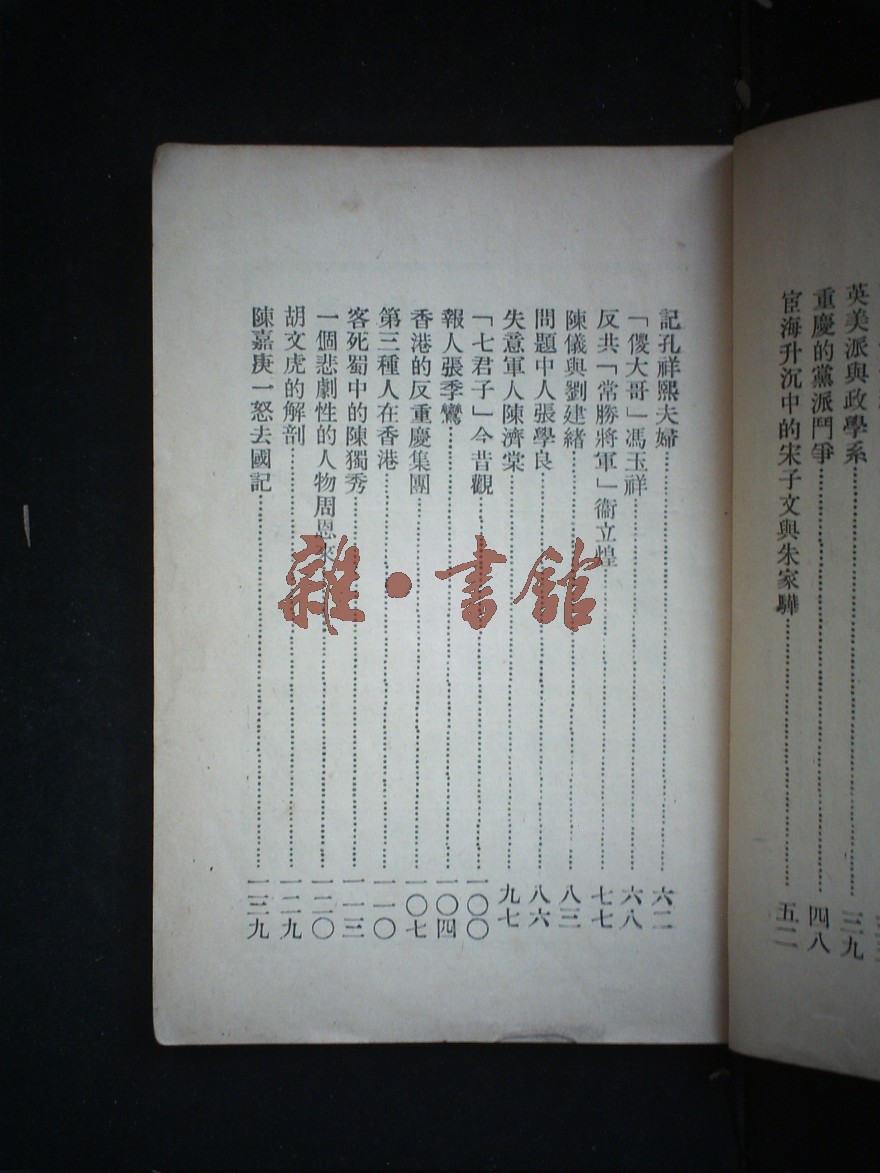 英美派與政學系……三九
重慶的黨派鬥爭……四八
宦海升沉中的宋子文與朱家驊……五二
記孔祥熙夫婦……六二
「傻大哥」馮玉祥……六八
反共「常勝將軍」衞立煌……七七
陳儀與劉建緒……八三
問題中人張學良……八六
失意軍人陳濟棠……九七
「七君子」今昔觀……一〇〇
報人張季鸞……一〇四
香港的反重慶集團……一〇七
第三種人在香港……一一〇
客死蜀中的陳獨秀……一一三
一個悲劇性的人物周恩來……一二〇
胡文虎的解剖……一二九
陳嘉庚一怒去國記……一三九
雜·書館